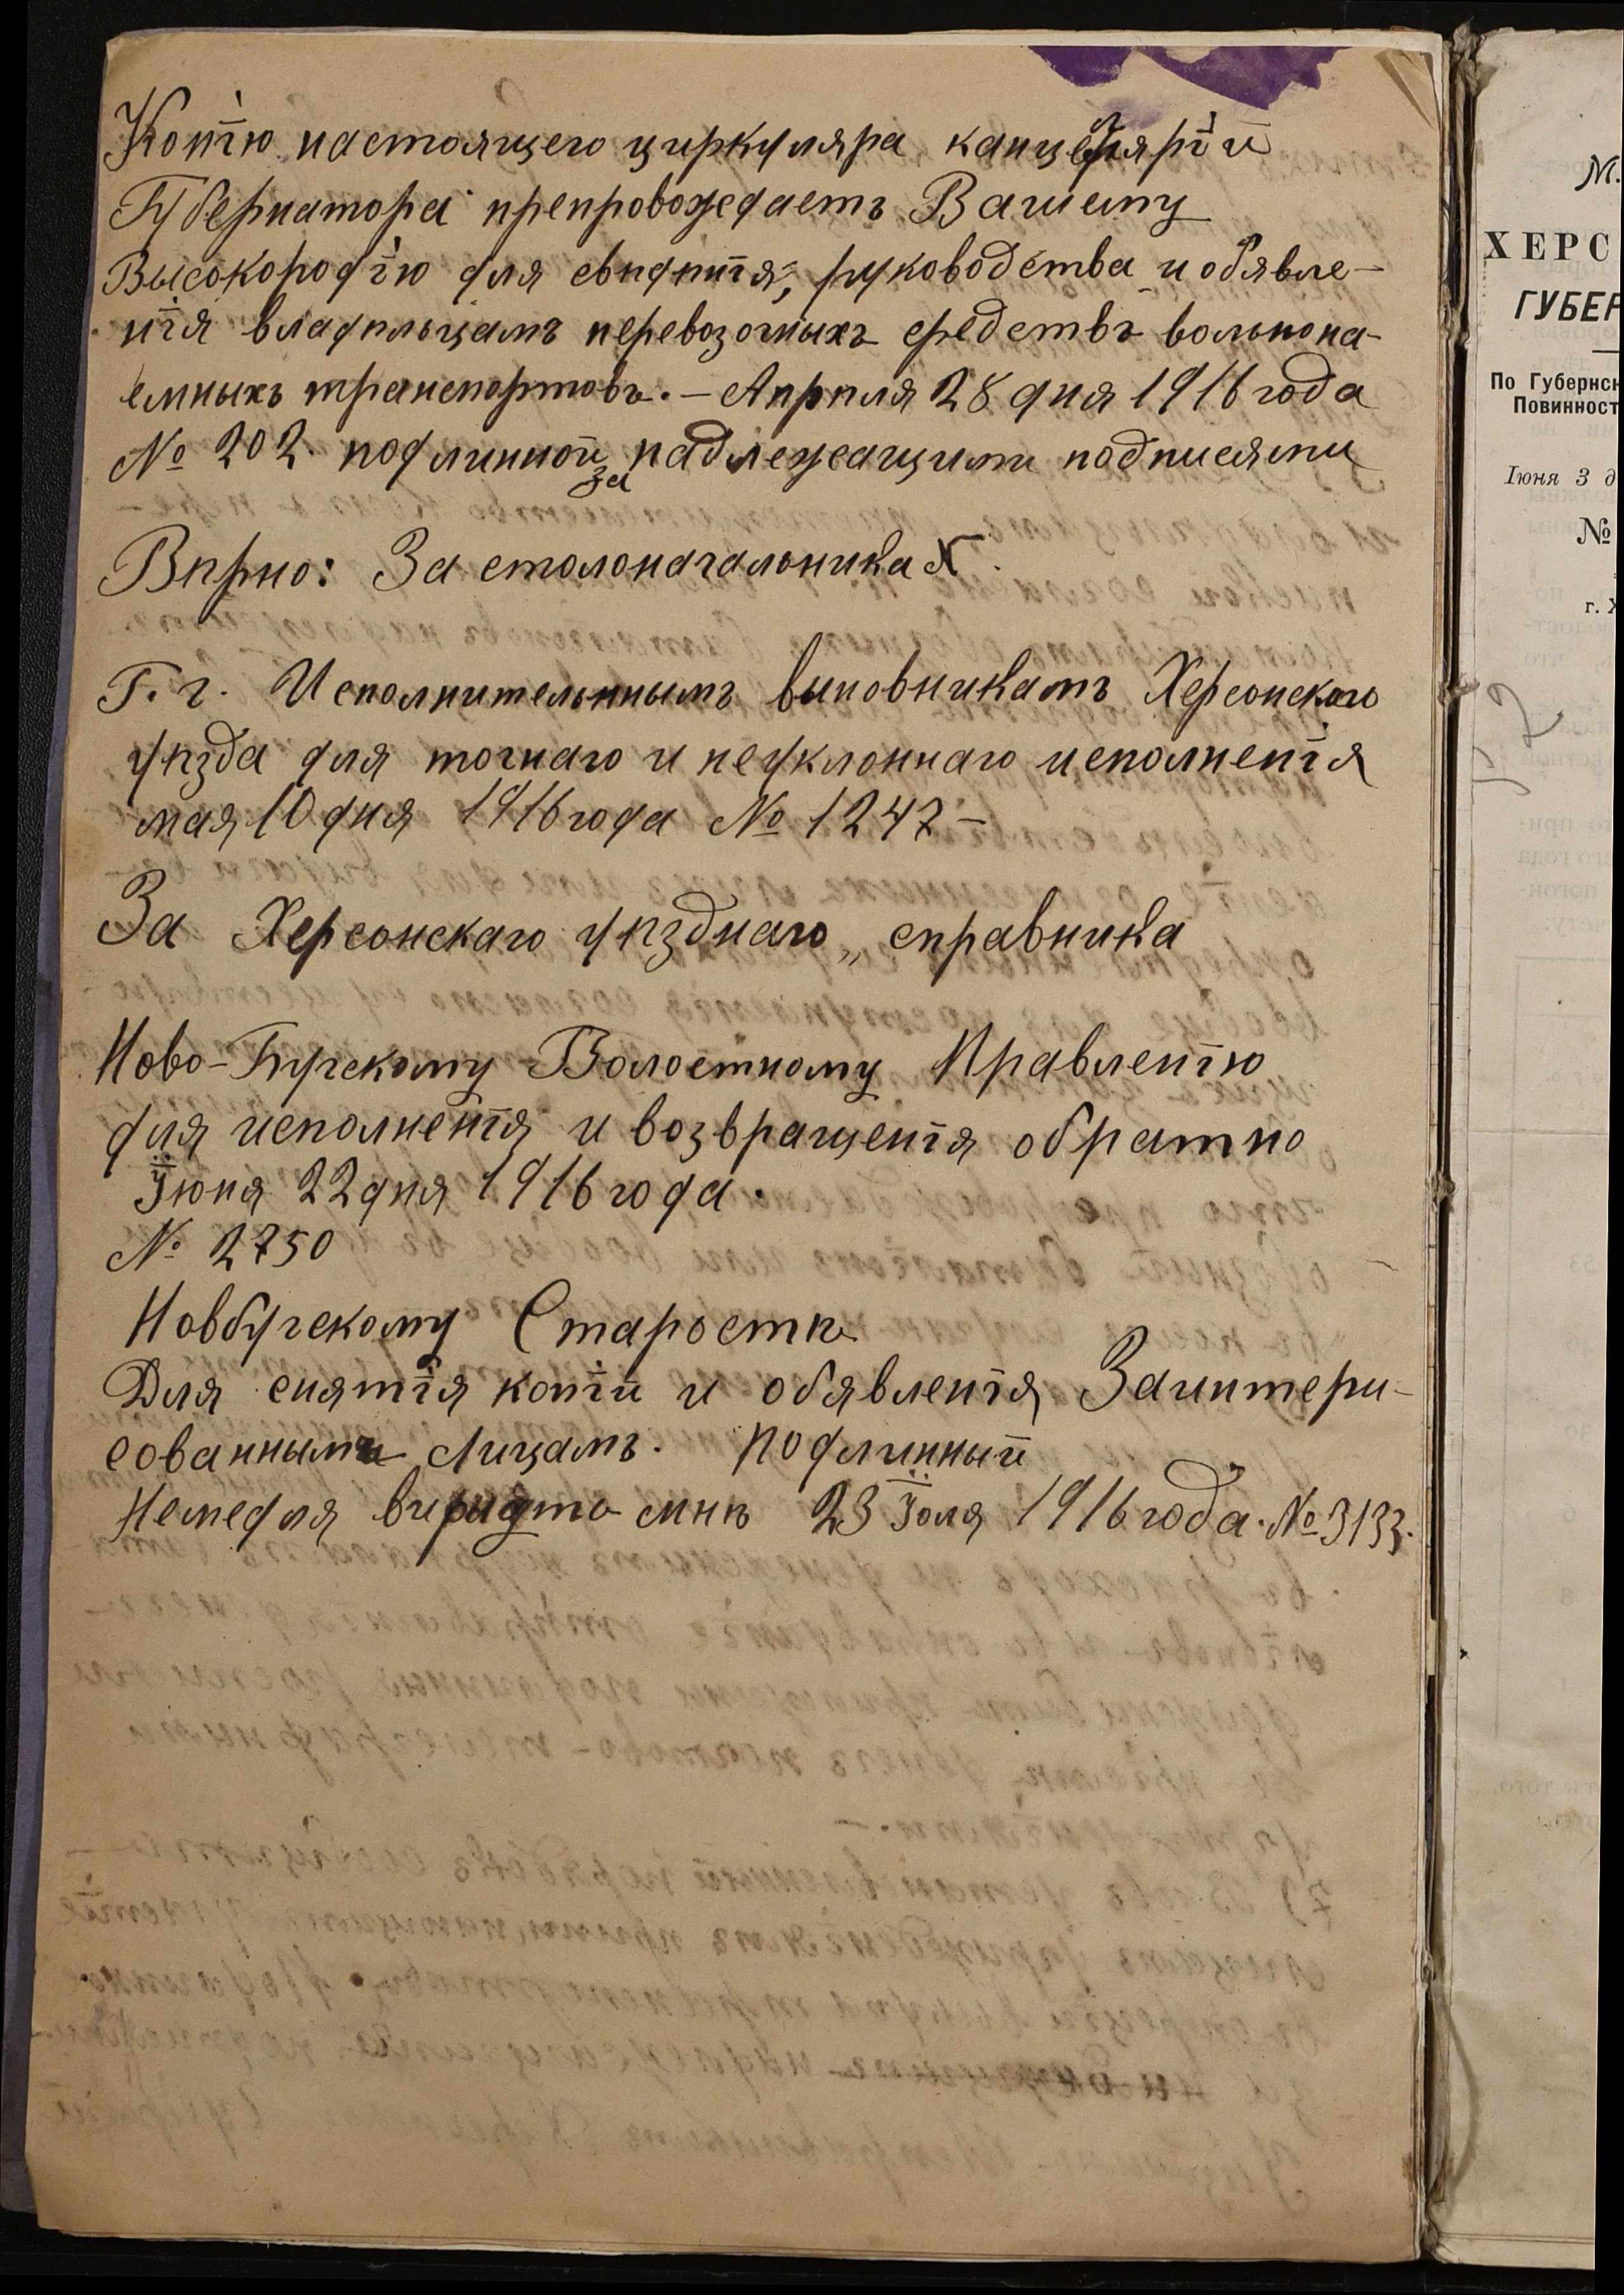 Копію настоящего циркуляра канцелярій
Губернатора препровождаетъ Вашему
Высокородію для свидѣнія, руководства и обявле-
нія владѣльцамъ перевозочныхъ средствъ вольнона-
емныхъ транспортовъ. – Апрѣля 28 дня 1916 года
№ 202 подлинной за надлежащими подписями
Вѣрно: За столоначальника
Г. г. Исполнительннымъ виновникамъ Херсонскаго
уѣзда для точнаго и неуклоннаго исполненія
мая 10 дня 1916 года № 1247 –
За Херсонскаго уѣзднаго „ справника
Ново-Бугскому Волостному Правленію
для исполненія и возвращенія обратно
Іюня 22 дня 1916 года.
№ 2750
Новбугскому Старостѣ
Для снятія копіи и обявленія Заинтери-
сованнымъ Лицамъ. подлинный
Немедля мнѣ 23 Іюля 1916 года. № 3133.
М.
ХЕРС
ГУБЕР
По Губернск
Повинност
Іюня 3 д
№
г. Х